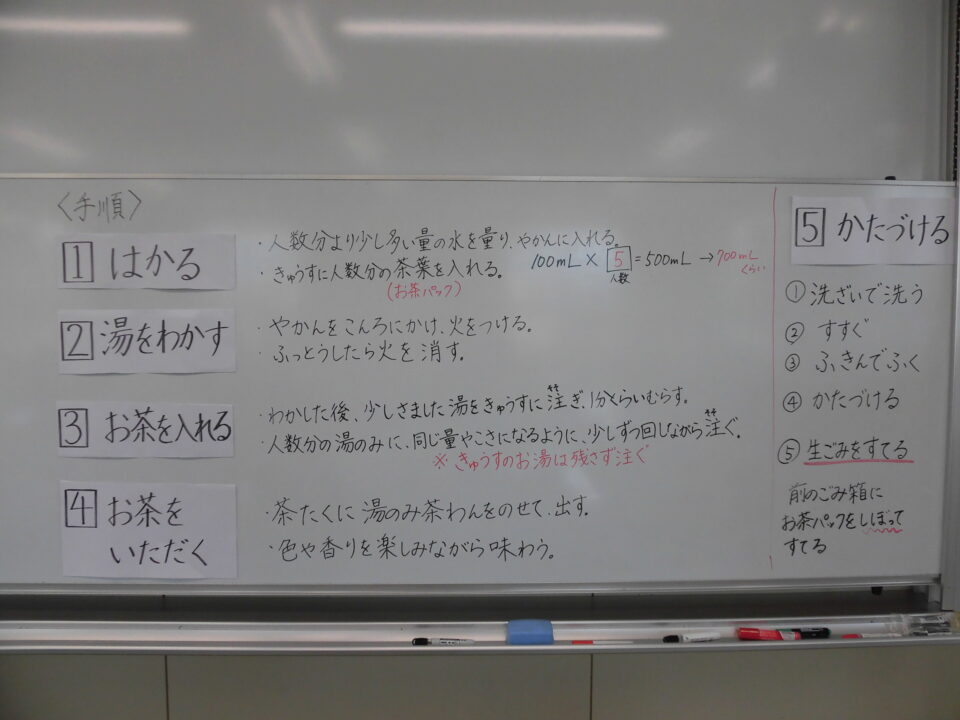 〈手順〉
1 はかる
・人数分より少し多い量の水を量り、やかんに入れる。
・きゅうすに人数分の茶葉を入れる。
(お茶パック)
100mL × 5 = 500mL → 700mL
人数
くらい
2 湯をわかす
・やかんをこんろにかけ、火をつける。
・ふっとうしたら火を消す。
3 お茶を入れる
・わかした後、少しさました湯をきゅうすに注ぎ、1分くらいむらす。
・人数分の湯のみに、同じ量やこさになるように、少しずつ回しながら注ぐ。
※ きゅうすのお湯は残さず注ぐ
4 お茶を
いただく
・茶たくに湯のみ茶わんをのせて、出す。
・色や香りを楽しみながら味わう。
5 かたづける
① 洗ざいで洗う
② すすぐ
③ ふきんでふく
④ かたづける
⑤ 生ごみをすてる
前のごみ箱に
お茶パックをしぼって
すてる